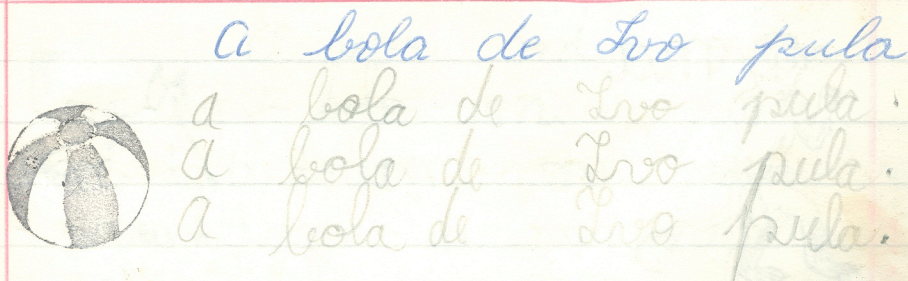 A bola de Ivo pula
a bola de Ivo pula.
A bola de Ivo pula.
A bola de Ivo pula.